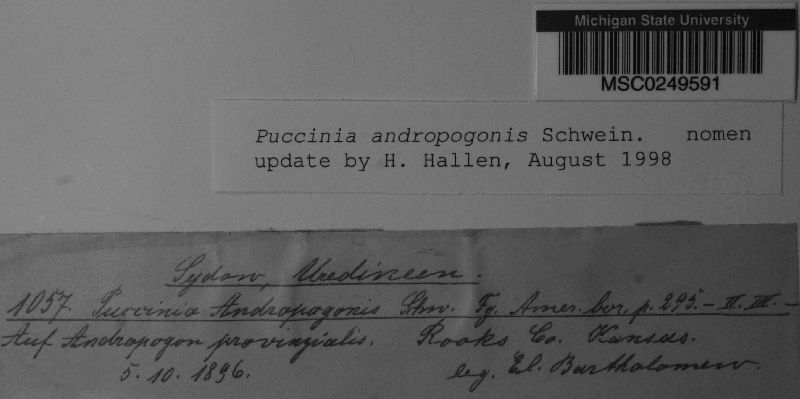 Michigan State University
MSC0249591
Puccinia andropogonis Schwein. nomen
update by H. Hallen, August 1998
Sydow, Uredineen.
1057. Puccinia Andropogonis Schw. Fg. Amer. bor. p. 295. – II. III. –
Auf Andropogon provinzialis. Rooks Co. Kansas.
5. 10. 1896. leg. El. Bartholomew.